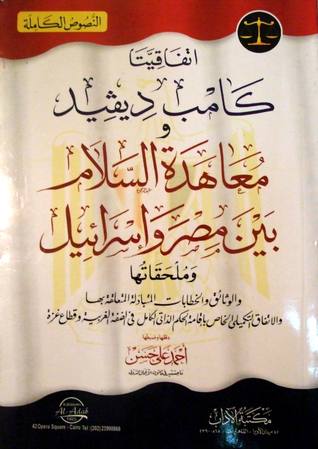 النصوص الكاملة
اتفاقيتا
كامب ديڤيد
و
معاهدة السلام
بين مصر وإسرائيل
وملحقاتها
والوثائق والخطابات المتبادلة المتعلقة بها
والاتفاق التكميلى الخاص بإقامة الحكم الذاتى الكامل فى الضفة الغربية وقطاع غزة
أحمد على حسن
مكتبة الآداب
Al-Adab
42 Opera Square - Cairo Tel: (202) 23900868